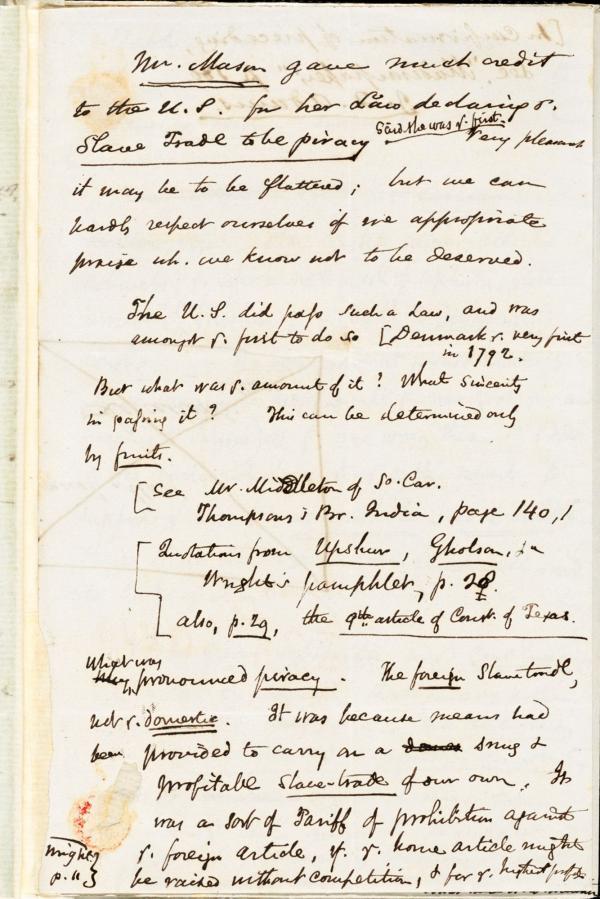 Mr. Mason gave much credit
to the U.S. for her Law declaring y.
Slave Trade to be piracy Said she was y. first. Very pleasant
it may be to be flattered; but we can
hardly respect ourselves if we appropriate
praise wh. we know not to be deserved.
The U.S. did pass such a Law, and was
amongst y. first to do so [Denmark y. very first
in 1792.
But what was y. amount of it? What sincerity
in passing it? This can be determined only
by fruits.
[See Mr. Middleton of So. Car.
Thompson's Br. India, page 140,1
[Quotations from Upshur, Gholson, in
Wright's pamphlet, p. 28.
also, p. 29, the 9th article of Const. of Texas.
What was
pronounced piracy. The foreign Slave trade,
not y. domestic. It was because means had
been provided to carry on a snug &
profitable slave-trade of our own. It
was a sort of Tariff of prohibition against
y. foreign article, yt. y. home article might
Wright p. 11.} be raised without competition, & for y. highest